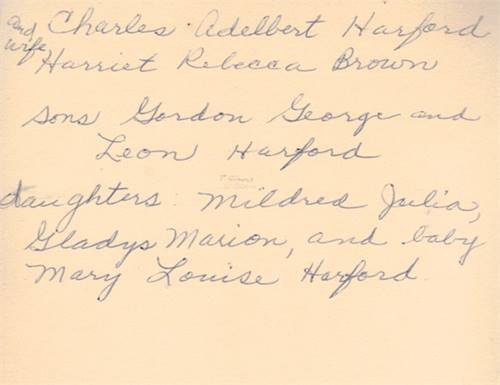 Charles Adelbert Harford
and wife Harriet Rebecca Brown
sons Gordon George and
Leon Harford
daughters Mildred Julia,
Gladys Marion, and baby
Mary Louise Harford